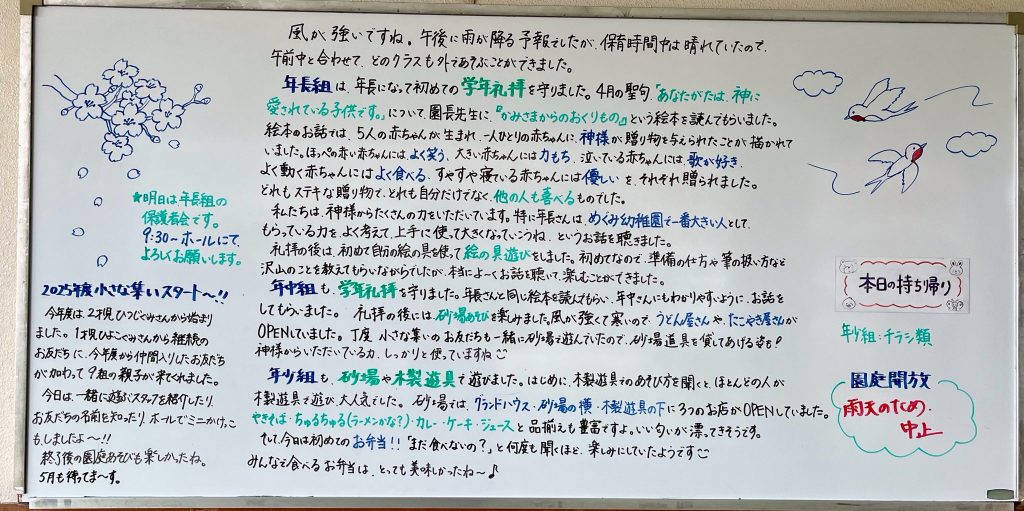 風が強いですね。午後に雨が降る予報でしたが、保育時間中は晴れていたので、
午前中と合わせて、どのクラスも外であそぶことができました。
年長組は、年長になって初めての学年礼拝を守りました。4月の聖句、「あなたがたは、神に
愛されている子供です。」について、園長先生に、『かみさまからのおくりもの』という絵本を読んでもらいました。
絵本のお話では、5人の赤ちゃんが生まれ、一人ひとりの赤ちゃんに、神様が贈り物を与えられたことが描かれて
いました。ほっぺの赤い赤ちゃんにはよく笑う、大きい赤ちゃんには力もち、泣いている赤ちゃんには、歌が好き、
よく動く赤ちゃんにはよく食べる、すやすや寝ている赤ちゃんには優しいを、それぞれ贈られました。
どれもステキな贈り物で、どれも自分だけでなく、他の人も喜べるものでした。
私たちは、神様からたくさんの力をいただいています。特に年長さんは、めぐみ幼稚園で一番大きい人として
もらっている力を、よく考えて、上手に使って大きくなっていこうね、というお話を聴きました。
礼拝の後は、初めて自分の絵の具を使って絵の具遊びをしました。初めてなので、準備の仕方や筆の扱い方など
沢山のことを教えてもらいながらでしたが、本当によーくお話を聴いて、楽しむことができました。
年中組も、学年礼拝を守りました。年長さんと同じ絵本を読んでもらい、年中さんにもわかりやすいように、お話を
してもらいました。 礼拝の後には、砂場遊びを楽しみました。風が強くて寒いので、うどん屋さんや、たこやき屋さんが
OPENしていました。丁度、小さな集いのお友だちも一緒に砂場で遊んでいたので、砂場道具を貸してあげる姿も!
神様からいただいている力、しっかりと使っていますね☺
年少組も、砂場や木製遊具で遊びました。はじめに、木製遊具でのあそび方を聞くと、ほとんどの人が
木製遊具で遊び、大人気でした。砂場では、グランドハウス・砂場の横・木製遊具の下に3つのお店がOPENしていました。
やきそば・ちゅるちゅる(ラーメンかな?)・カレー・ケーキ・ジュースと品揃えも豊富ですよ。いい匂いが漂ってきそうです。
そして、今日は初めてのお弁当!!「まだ食べないの?」と何度も聞くほど、楽しみにしていたようです☺
みんなで食べるお弁当は、とっても美味しかったね〜♪
★明日は年長組の
保護者会です。
9:30〜ホールにて、
よろしくお願いします。
2025年度小さな集いスタート〜!!
今年度は、2才児ひつじぐみさんから始まり
ました。1才児ひよこぐみさんから継続の
お友だちに、今年度から仲間入りしたお友だち
が加わって9組の親子が来てくれました。
今日は、一緒に遊ぶスタッフを紹介したり、
お友だちの名前を知ったり、ホールでミニかけっこ
もしましたよ〜!!
終了後の園庭あそびも楽しかったね。
5月も待ってま〜す。
本日の持ち帰り
年少組:チラシ類
園庭開放
雨天のため、
中止